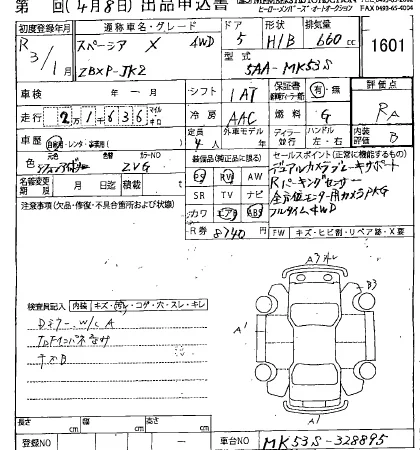 第 回(4月8日) 出品申込書
ヒーローメンバーズオートオークション FAX 0493-65-4004
初度登録年月 通称車名・グレード ドア 形状 排気量
R3/1月 スペーシア X 4WD 5 H/B 660cc 1601
ZBXP-JK2 型式 5AA-MK53S
車検 年 月 シフト 1AT 保証書 有・無 評価点 RA
走行 2万1636 マイル キロ 冷房 AAC 燃料 G
車歴 自家用・レンタ・事業用( ) 定員 4人 外車モデル ディーラー 並行 ハンドル 左・右 内装評価 B
色 元色 色替 カラーNO ZVG
名義変更期限 月 日迄 積載 t
装備品(純正品に限る) PS PW AW
SR TV ナビ
カワ エアB ABS
R券 8740
セールスポイント(正常に機能するもの)
デュアルカメラブレーキサポート
Rパーキングセンサー
全方位モニター用カメラPKG
フルタイム4WD
FW キズ・ヒビ割・リペア跡・X要
注意事項(欠品・修復・不具合箇所および状態)
検査員記入 内装 キズ・汚レ・コゲ・穴・スレ・キレ
A1
B3
A1
A1
長さ cm 幅 cm 高さ cm
登録NO 車台NO MK53S-328895